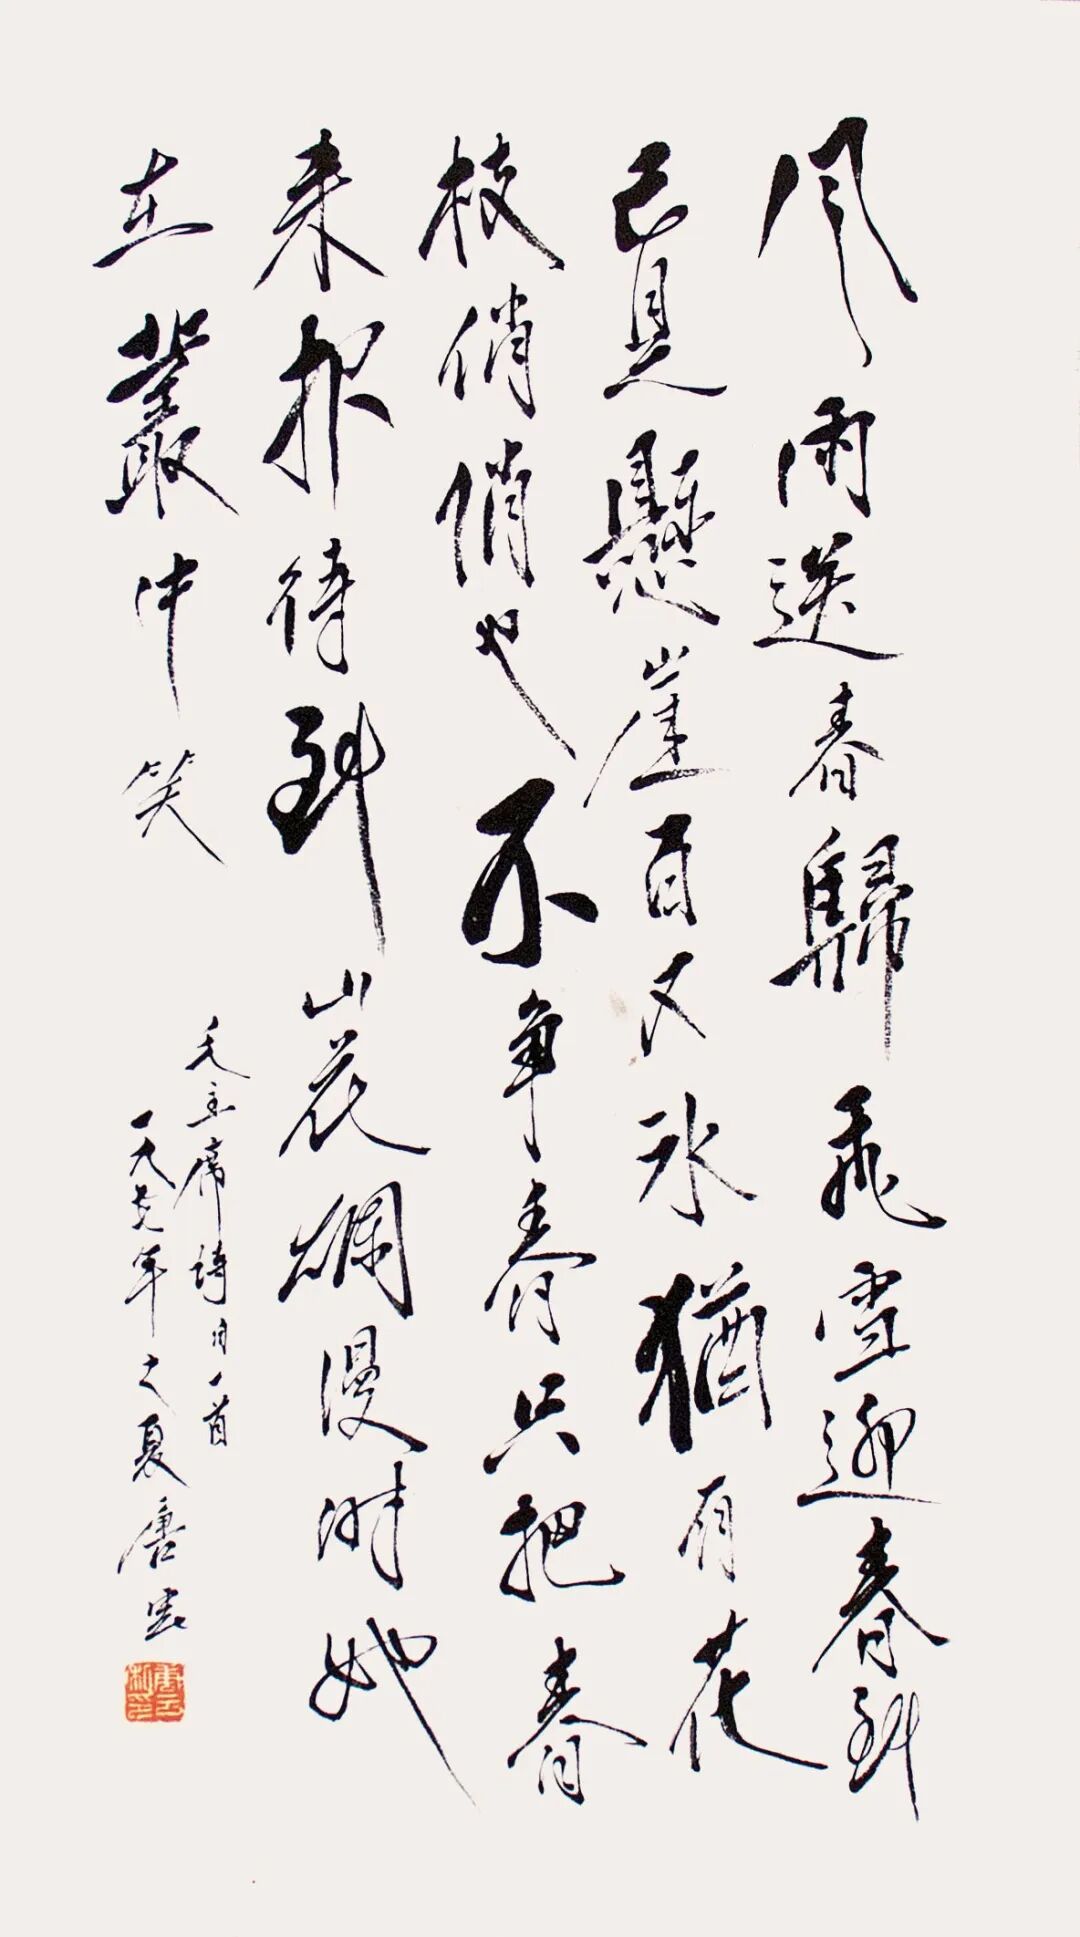 风雨送春歸飛雪迎春到
已見懸崖百丈冰猶有花
枝俏俏也不争春只把春
来报待到山花爛漫时她
在叢中笑
毛主席詩词一首
一九七年之夏唐雲